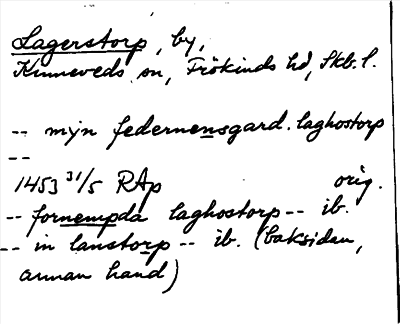 Lagerstorp, by,
Kinneveds sn, Frökinds hd, Skb. l.
-- mijn federnensgard. laghostorp
--
1453 31/5 RAp orig.
-- fornempda laghostorp -- ib.
-- in lanstorp -- ib. (baksidan,
annan hand)